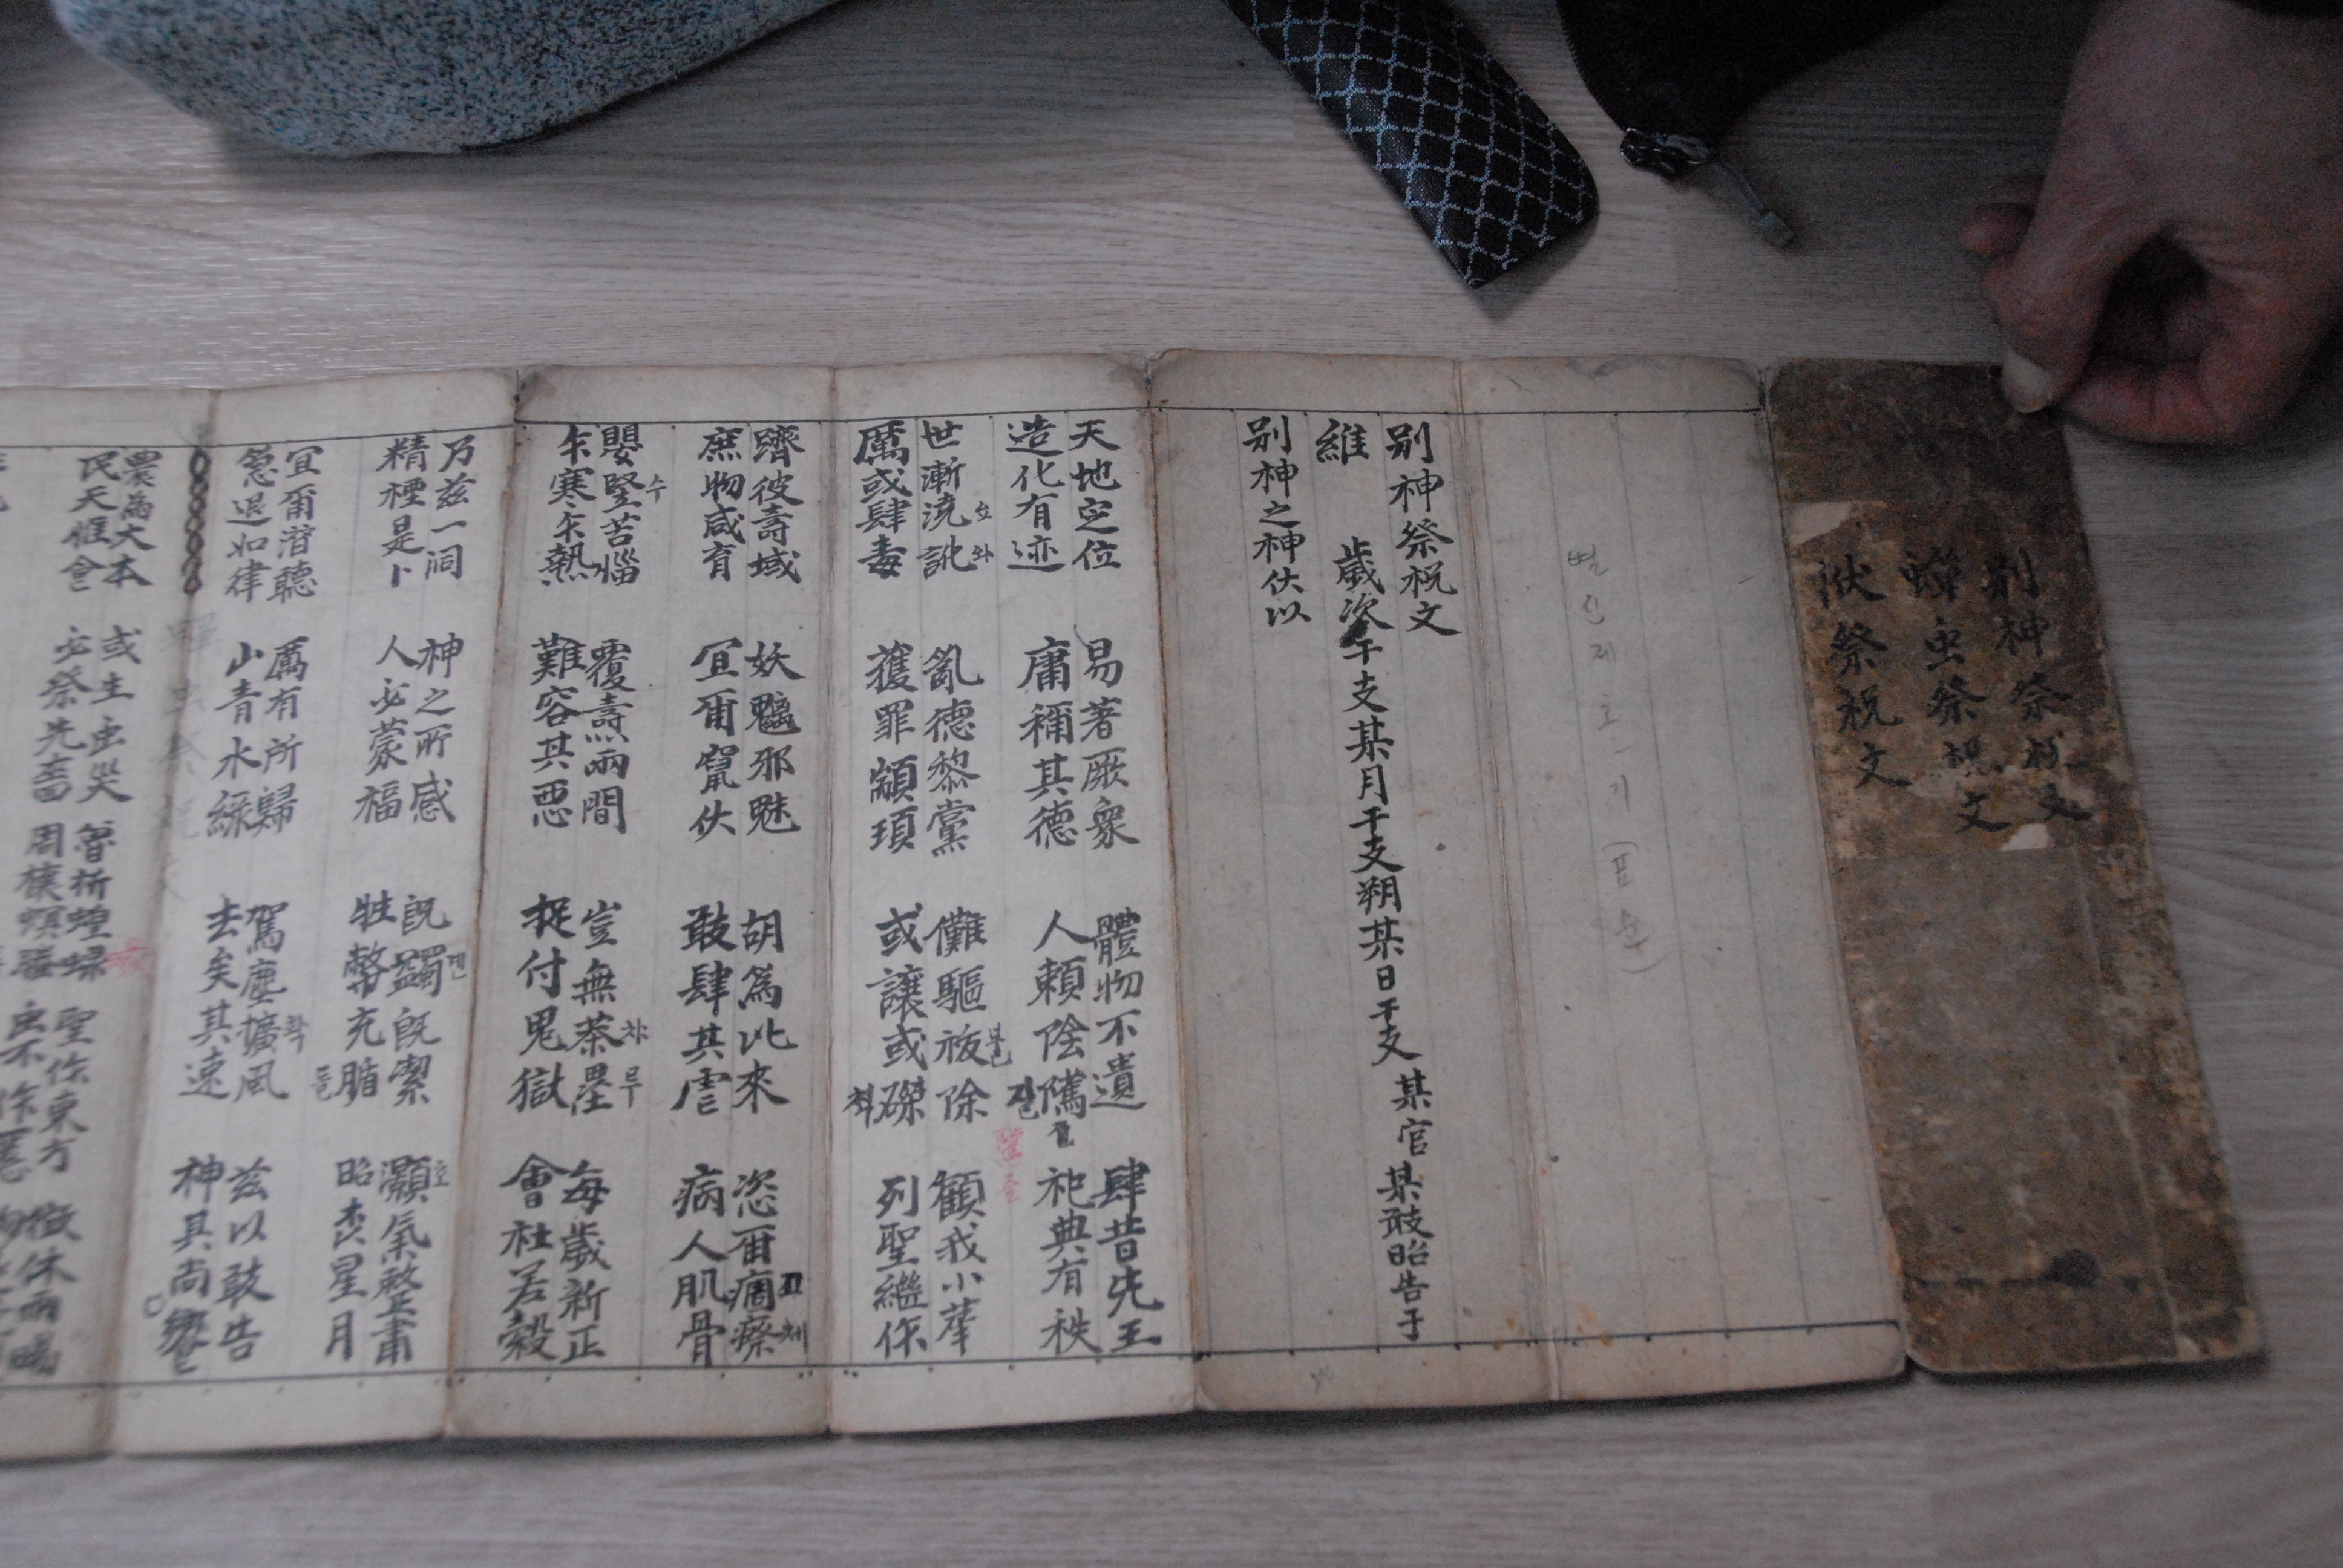 別神祭祝文
蟬虫祭祝文
洑祭祝文
별신제
別神祭祝文
維 歲次干支某月干支朔某日干支 某官某敢昭告于
別神之神伏以
天地定位 易著厥象 體物不遺 肆昔先王
造化有迹 庸禰其德 人賴陰隲 祀典有秩
世漸澆訛 亂德黎黨 儺驅祓除 顧我小華
厲或肆毒 獲罪顓頊 或讓或磔 列聖繼作
躋彼壽域 妖魑邪魅 胡爲比來 恣爾痼瘵
庶物咸育 宜爾竄伏 敢肆其虐 病人肌骨
嬰竪苦惱 覆燾兩間 豈無荼壘 每歲新正
乍寒乍熱 難容其惡 捉付鬼獄 會社若穀
乃茲一洞 神之所感 旣蠲旣潔 灝氣整肅
精禋是卜 人必蒙福 牲幣充腯 昭森星月
宜爾潛聽 厲有所歸 駕塵擴風 茲以敢告
急退如律 山青水綠 去矣其遠 神其尙饗
農爲大本 或生虫災 聖作東方
民天惟食 必祭先嗇 虫不作慝